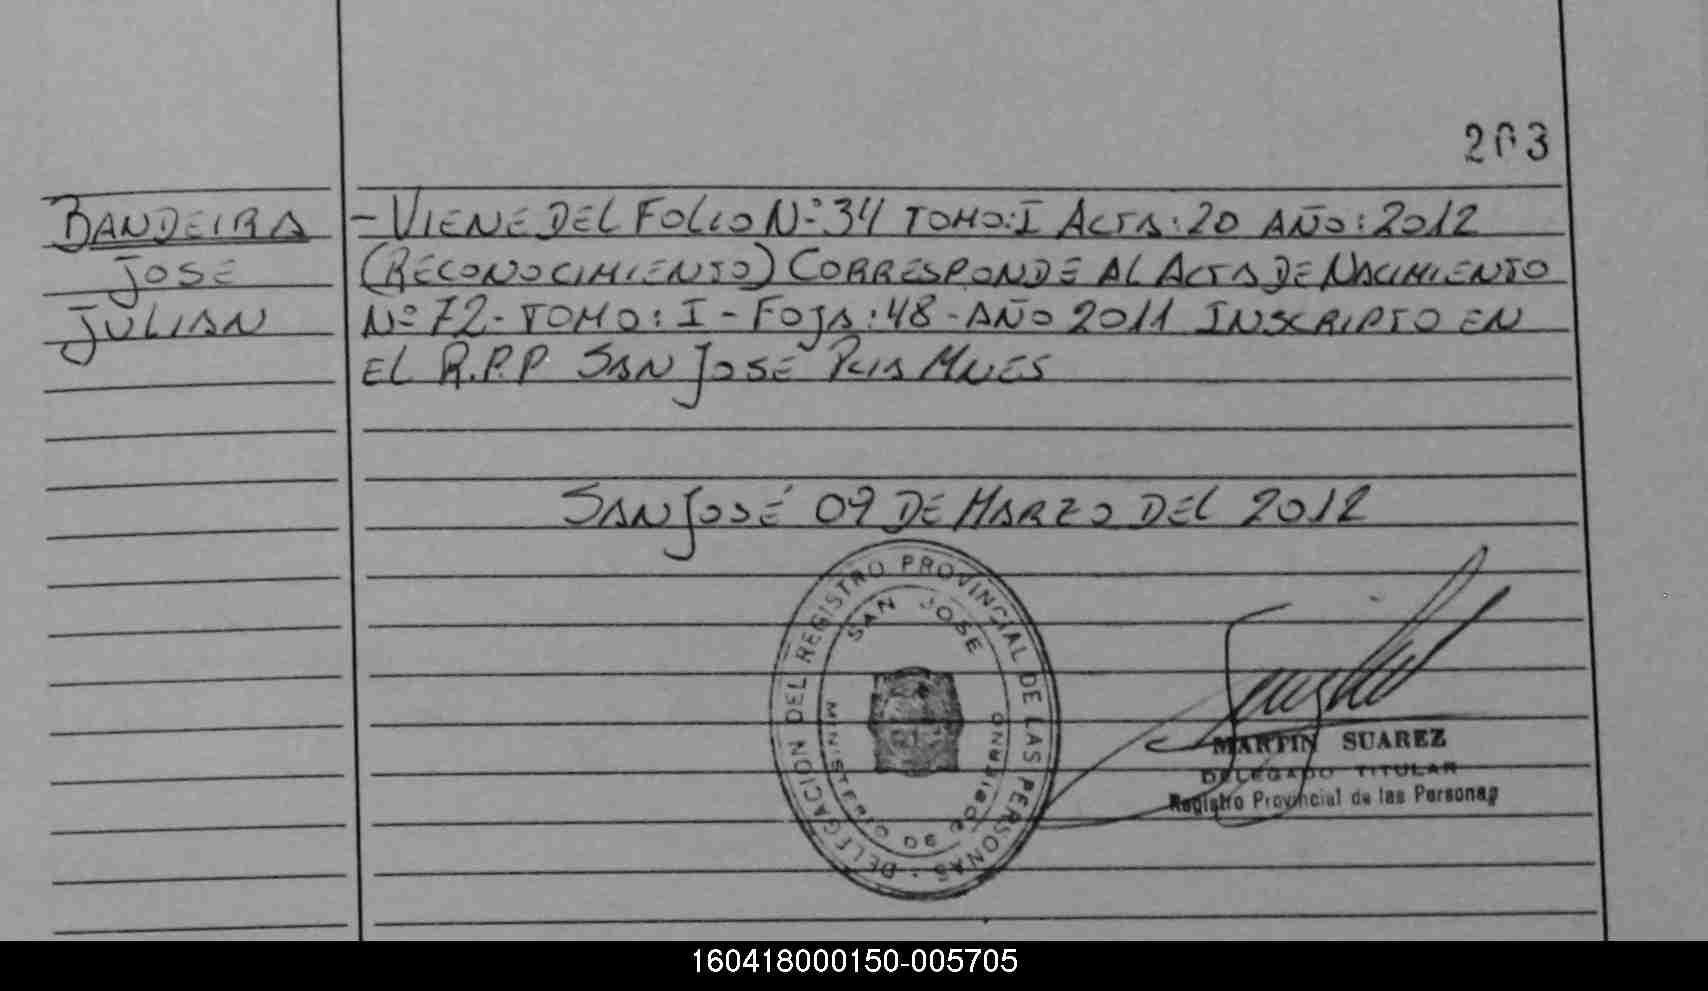 203
BANDEIRA
JOSÉ
JULIAN
- VIENE DEL FOLIO Nº 34 TOMO: I ACTA: 20 AÑO: 2012
(RECONOCIMIENTO) CORRESPONDE AL ACTA DE NACIMIENTO
Nº 72 - TOMO: I - FOJA: 48 - AÑO 2011 INSCRIPTO EN
EL R.P.P SAN JOSÉ
SAN JOSÉ 09 DE MARZO DEL 2012
DELEGACION DEL REGISTRO PROVINCIAL DE LAS PERSONAS
SAN JOSE
MINISTERIO DE GOBIERNO
MARTIN SUAREZ
DELEGADO TITULAR
Registro Provincial de las Personas
160418000150-005705